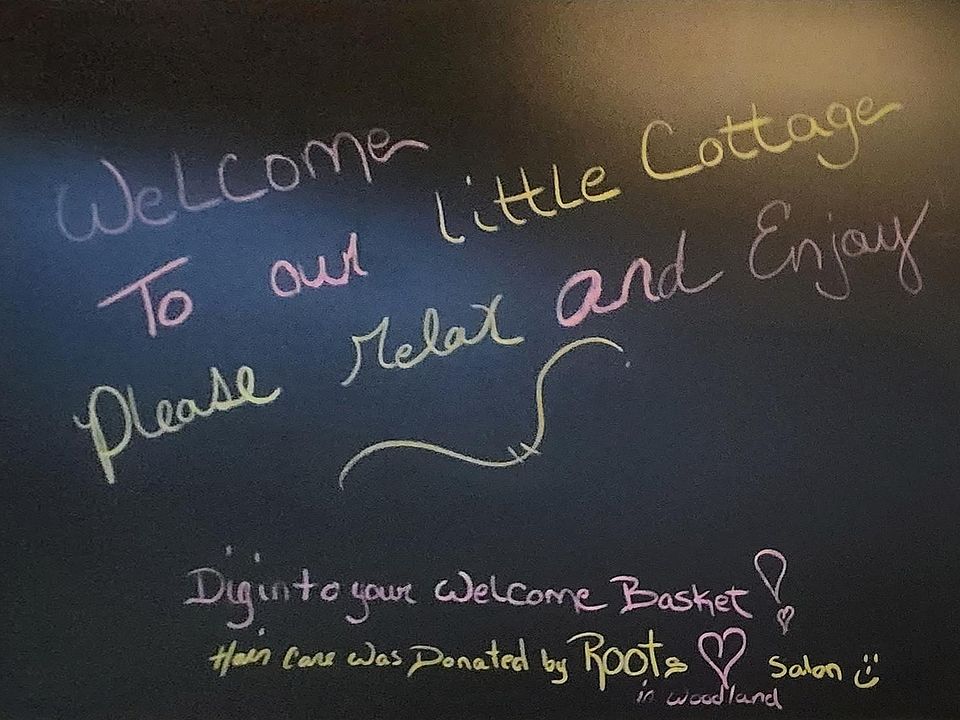 Welcome
To our little Cottage
Please relax and Enjoy
Dig into your Welcome Basket!
Hair Care was Donated by Roots ♡ Salon
in woodland